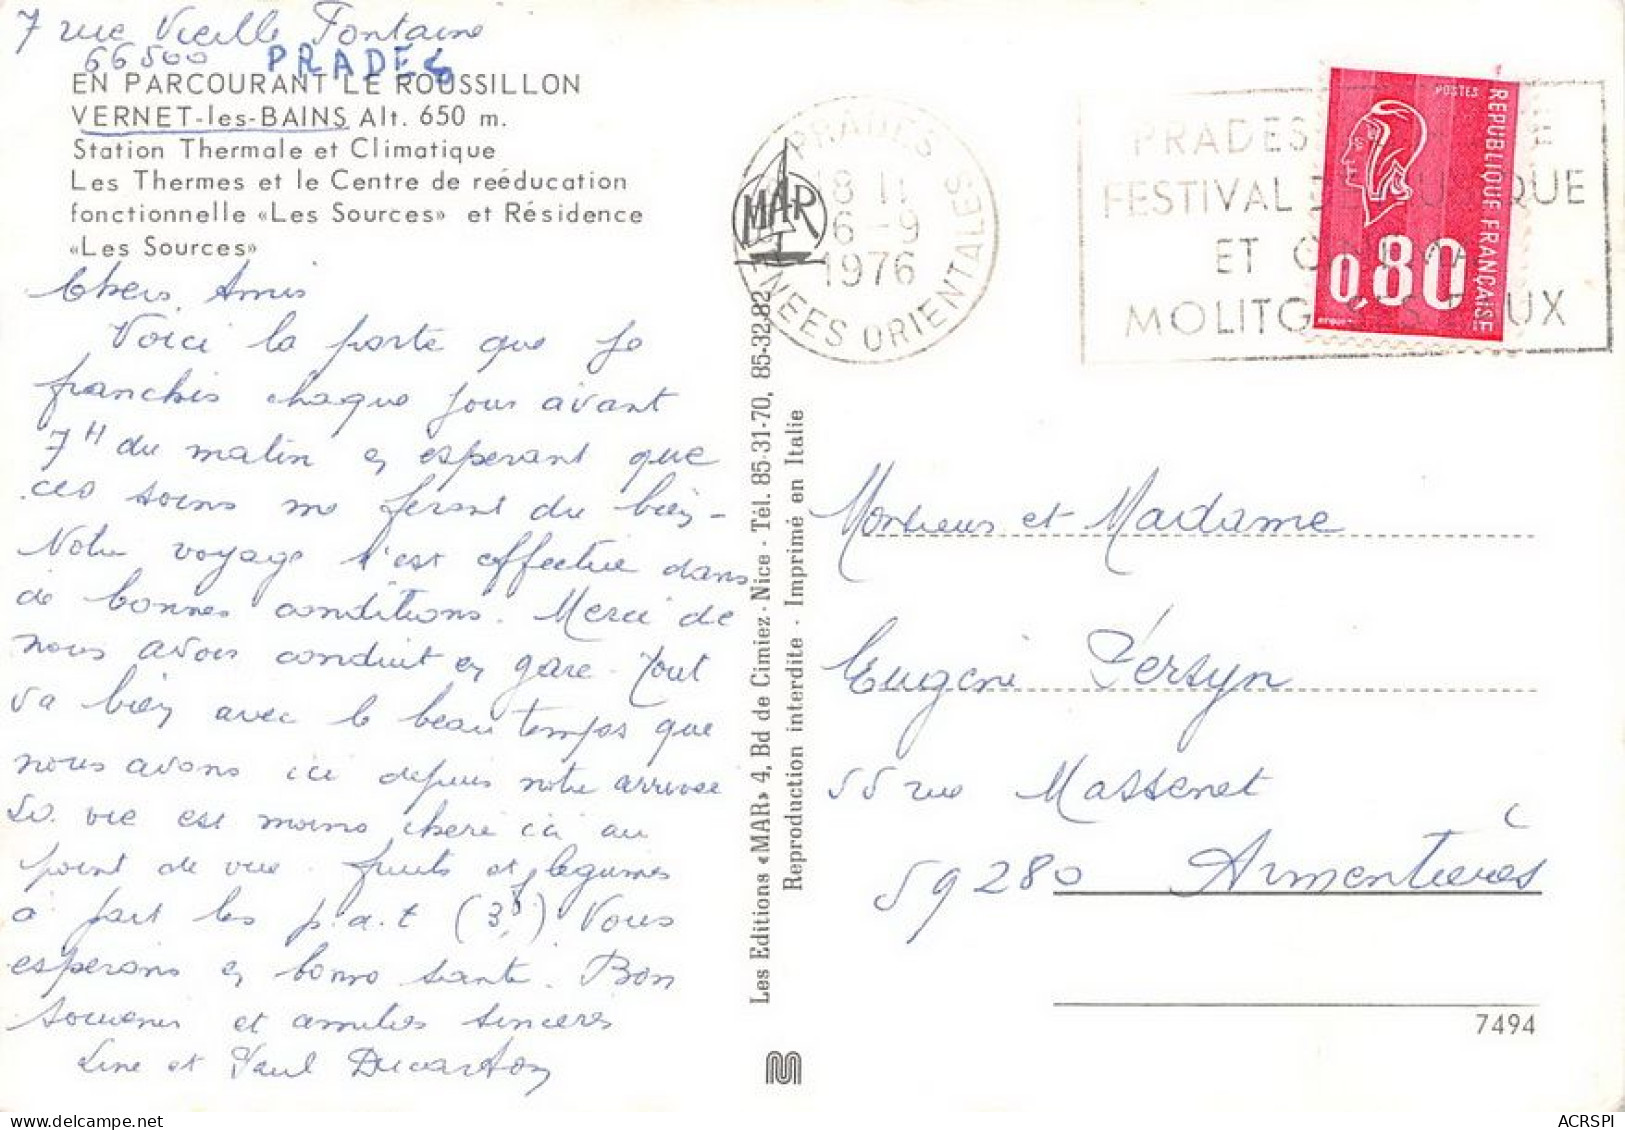 7 rue Vieille Fontaine
66500 PRADES
EN PARCOURANT LE ROUSSILLON
VERNET-les-BAINS Alt. 650 m.
Station Thermale et Climatique
Les Thermes et le Centre de reéducation
fonctionnelle «Les Sources» et Résidence
«Les Sources»
Chers Amis
Voici la porte que je
franchis chaque jour avant
7H du matin en esperant que
ces soins me feront du bien -
Notre voyage s'est effectue dans
de bonnes conditions. Merci de
nous avoir conduit en gare - Tout
va bien avec le beau temps que
nous avons ici depuis notre arrivee
La vie est moins chere ici au
point de vue fruits et legumes
a part les p.d.t (3F) Vous
esperons en bonne sante. Bon
souvenir et amities sinceres
Line et Paul
PRADES
18 H
6 - 9
1976
PYRENEES ORIENTALES
MAR
PRADES
FESTIVAL DE MUSIQUE
ET CINEMA
MOLITG-LES-BAINS
POSTES
REPUBLIQUE FRANÇAISE
0,80
Les Editions «MAR» 4, Bd de Cimiez - Nice - Tél. 85-31-70, 85-32-82
Reproduction interdite - Imprimé en Italie
Monsieur et Madame
Eugène Persyn
55 rue Massenet
59280 Armentières
7494
M
ACRSPI